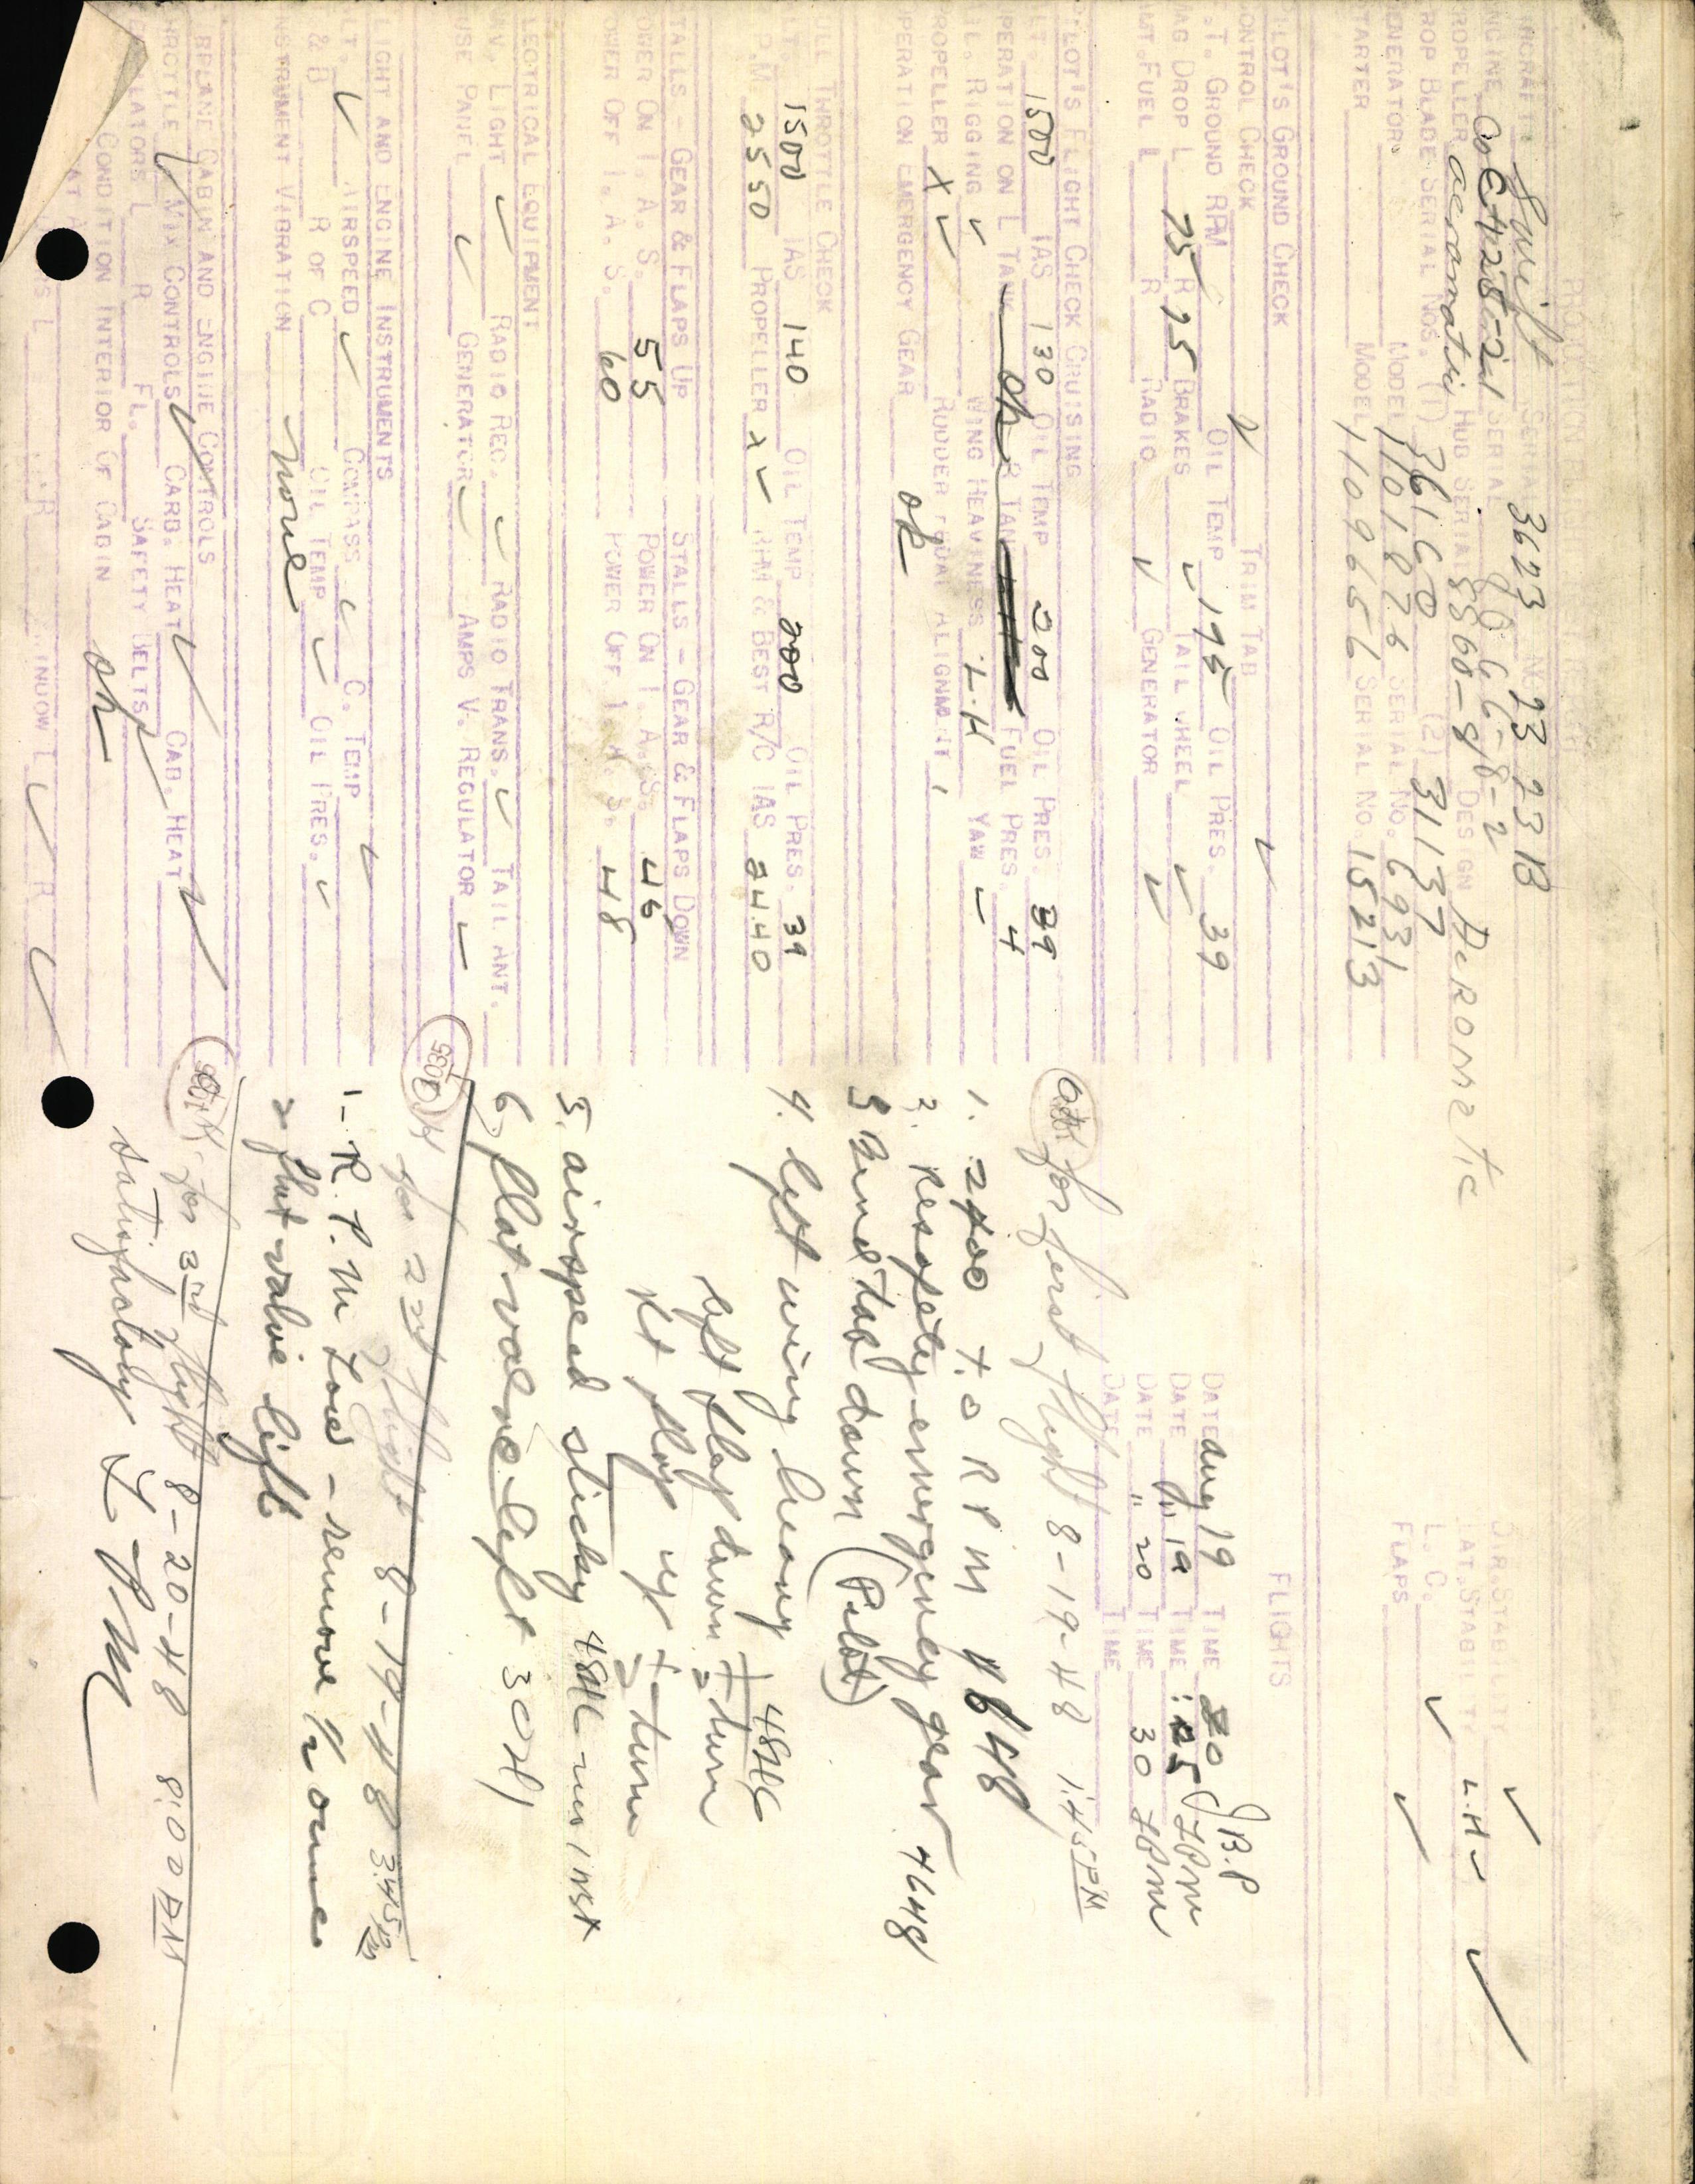 AIRCRAFT Swift SERIAL 3623 NO. 2331B
ENGINE SERIAL
PROPELLER aeromatic HUB SERIAL DESIGN Aeromatic
PROP BLADE SERIAL NOS. (1) (2) 31137
GENERATOR MODEL 1101876 SERIAL NO. 6931
STARTER MODEL 1109656 SERIAL NO. 15213
DIR. STABILITY ✓
LAT. STABILITY L.H ✓
L. C. ✓
FLAPS ✓
PILOT'S GROUND CHECK
CONTROL CHECK ✓ TRIM TAB ✓
GROUND RPM OIL TEMP ✓ 195 OIL PRES. 39
MAG DROP L 75 R 75 BRAKES ✓ TAIL WHEEL ✓
AMT. FUEL L R RADIO ✓ GENERATOR ✓
FLIGHTS
DATE Aug 19 TIME J B.P
DATE " 19 TIME
DATE " 20 TIME 30
DATE TIME
PILOT'S FLIGHT CHECK CRUISING
ALT. 1500 IAS 130 OIL TEMP 200 OIL PRES. 39
OPERATION ON L TANK OK R TANK FUEL PRES. 4
TAIL RIGGING ✓ WING HEAVINESS L-H YAW ✓
PROPELLER X ✓ RUDDER PEDAL ALIGNMENT
OPERATION EMERGENCY GEAR OK
FULL THROTTLE CHECK
ALT. 1500 IAS 140 OIL TEMP 200 OIL PRES. 39
R.P.M 2550 PROPELLER X ✓ RPM & BEST R/C IAS 2440
STALLS - GEAR & FLAPS UP STALLS - GEAR & FLAPS DOWN
POWER ON I. A. S. 55 POWER ON I. A. S. 46
POWER OFF I. A. S. 60 POWER OFF I. A. S. 48
ELECTRICAL EQUIPMENT
NAV. LIGHT ✓ RADIO REC. ✓ RADIO TRANS. ✓ TAIL ANT.
FUSE PANEL ✓ GENERATOR ✓ AMPS V. REGULATOR ✓
FLIGHT AND ENGINE INSTRUMENTS
ALT. ✓ AIRSPEED ✓ COMPASS ✓ C. TEMP ✓
T & B R OF C OIL TEMP ✓ OIL PRES. ✓
INSTRUMENT VIBRATION none
AIRPLANE CABIN AND ENGINE CONTROLS
THROTTLE ✓ MIX CONTROLS ✓ CARB. HEAT ✓ CAB. HEAT ✓
VENTILATORS L R FL. SAFETY BELTS ✓
CONDITION INTERIOR OF CABIN OK
L R WINDOW L ✓ R ✓
OK for first flight 8-19-48 1:45 PM
1. 2400 T.O RPM 4648
2. Resafety emergency gear 4648
3 Bend tab down (Pilot)
4. left wing heavy
left flap down ½ turn
Rt flap up ½ turn
5. airspeed sticky
6. flat valve left 30H
OK for 2nd flight 8-19-48 3:45 PM
1- R.P.M Low - remove ½ ounce
2 flat valve left
OK for 3rd flight 8-20-48 8:00 AM
satisfactory